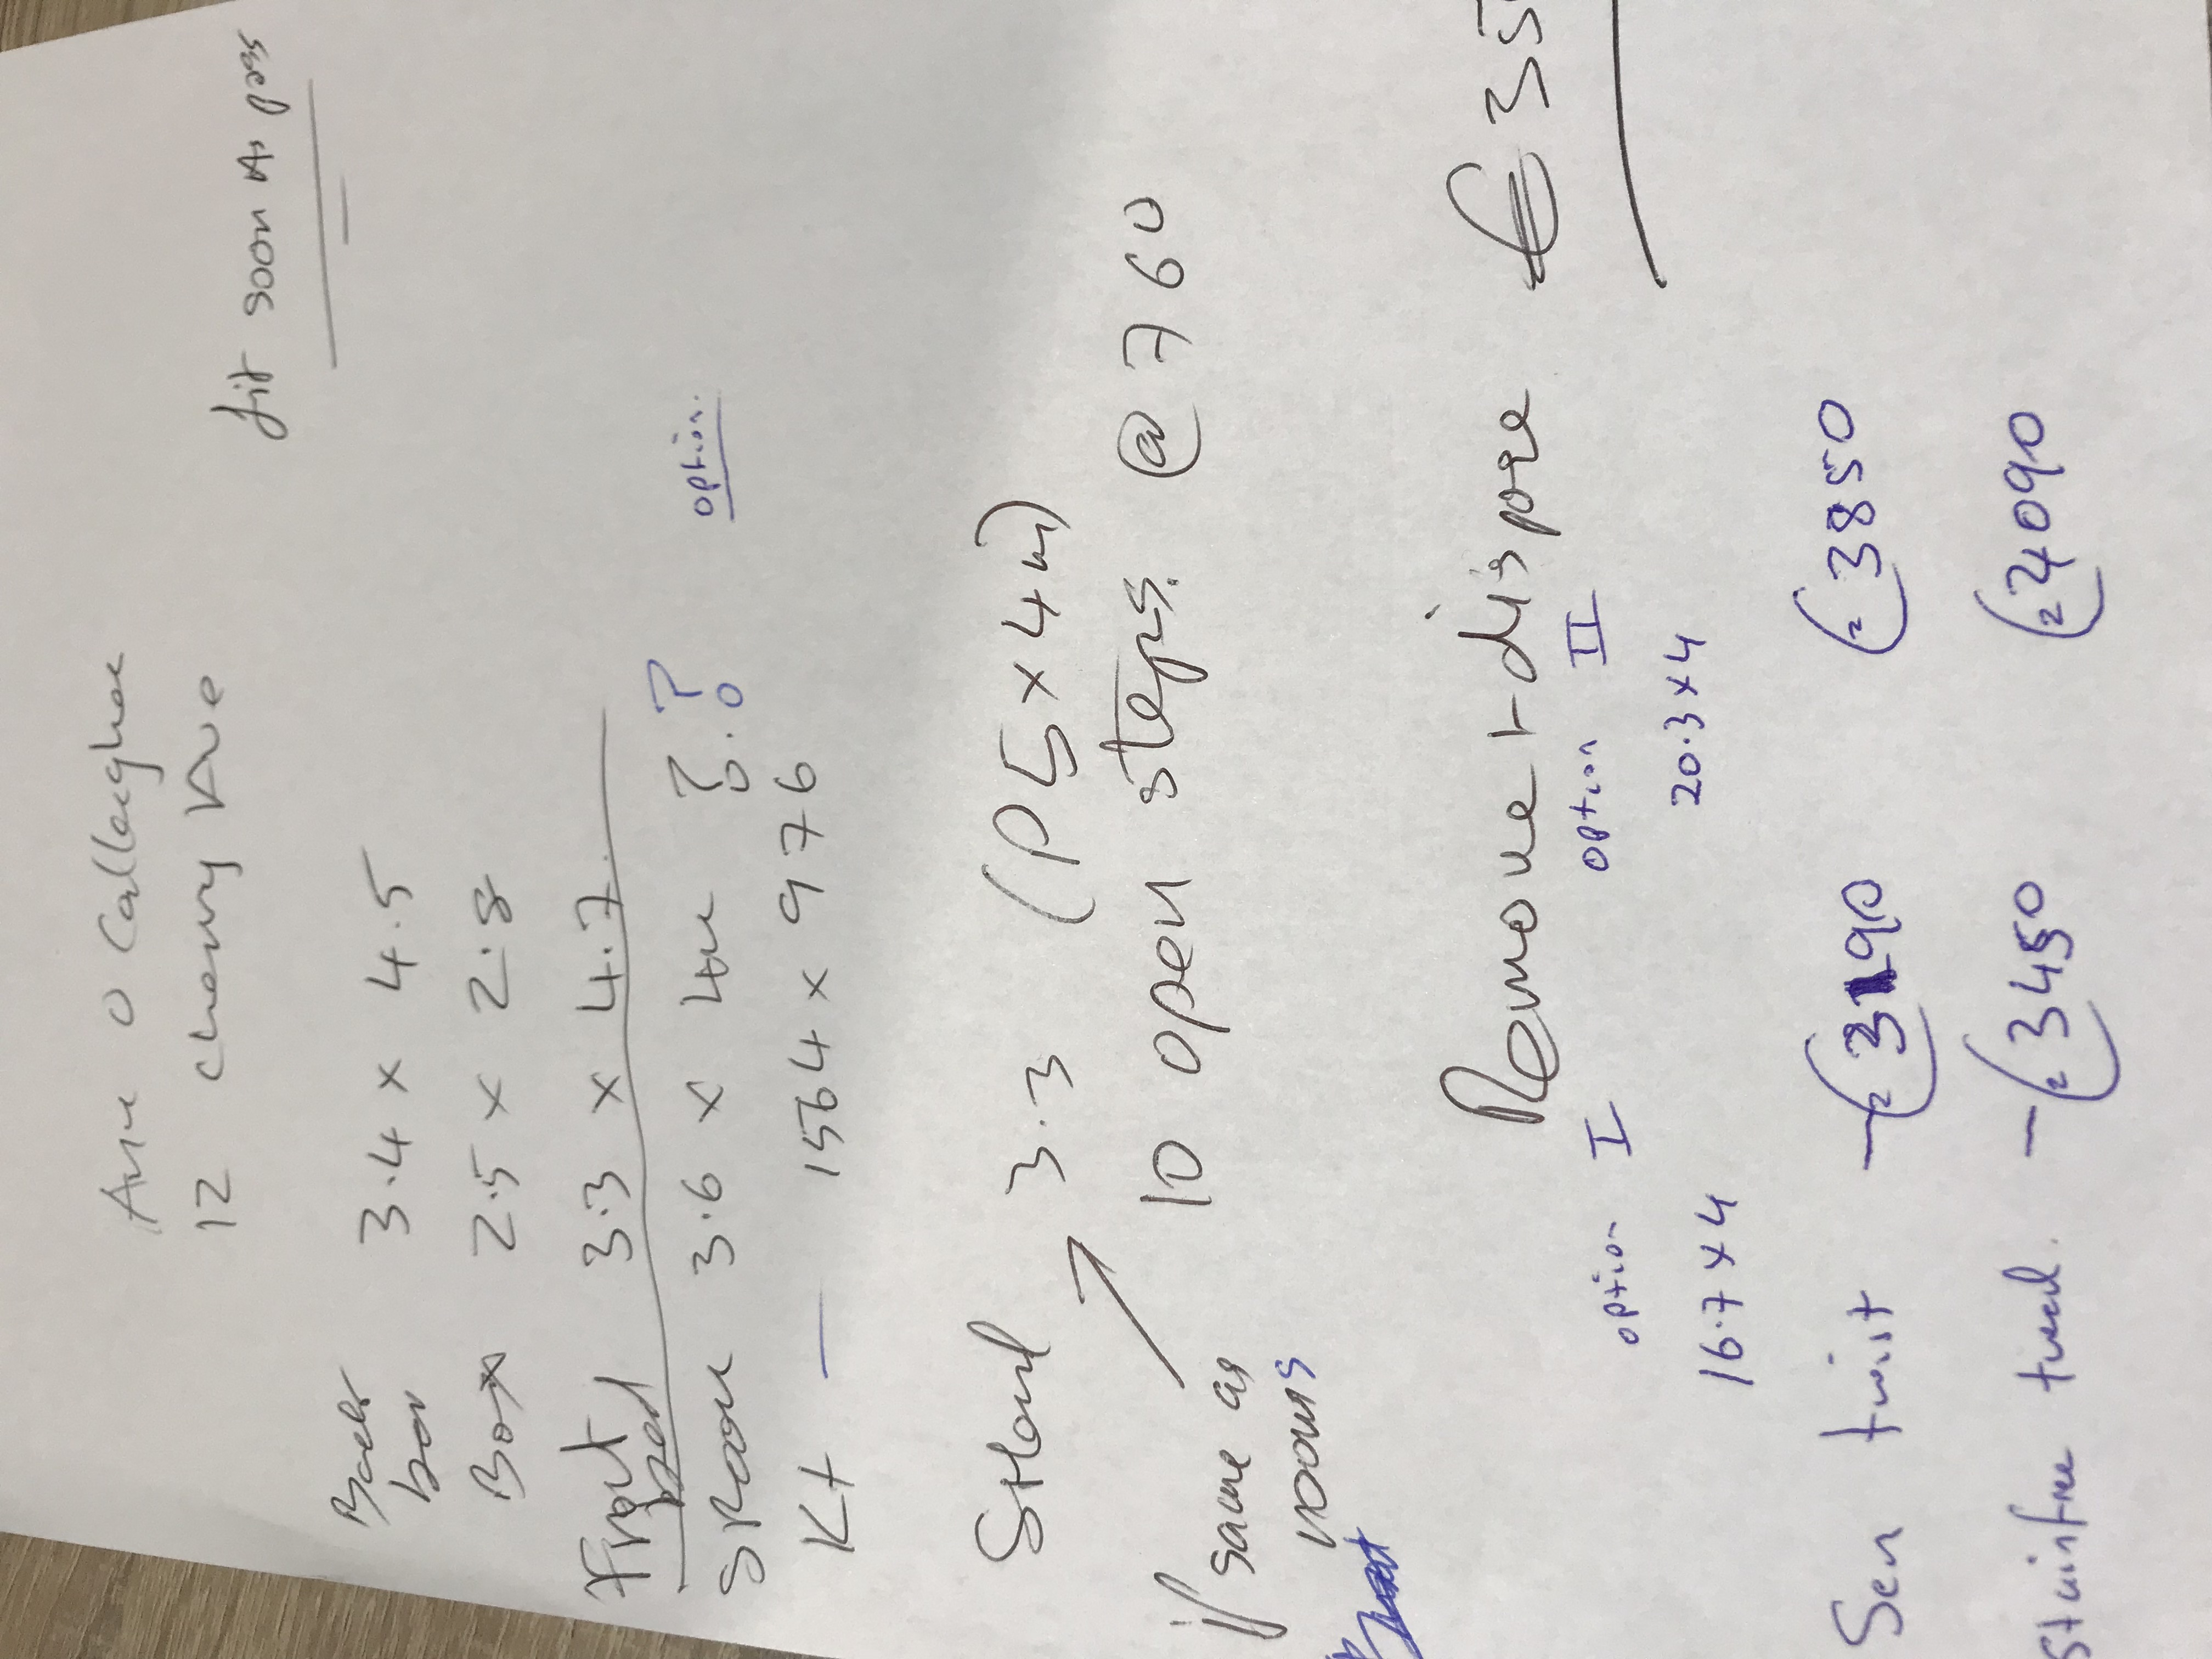 fit soon As poss
Ane O Callaghan
12 cherry Ave
Back 3.4 x 4.5
Box 2.5 x 2.8
Front bed 3.3 x 4.7
SRoom 3.6 x 4m ?? ? option.
Kt — 1564 x 976
Stland 3.3 (P5 x 4m)
10 open steps. @ 760
if same as rooms
Remove + dispose € 35
option I option II
16.7 x 4 20.3 x 4
Sen twist — 3190 3850
Stainfree tweed. — 3450 4090